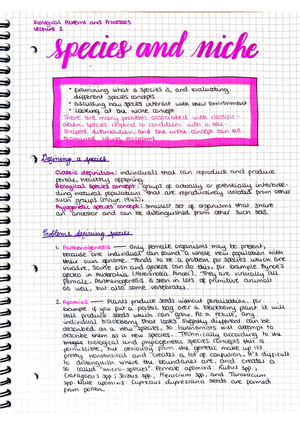 Ecological Patterns and Processes
Lecture 2
species and niche
• Examining what a species is, and evaluating
different species concepts
• Discussing how species interact with their environment
• Looking at the niche concept
There are many problems associated with classific-
ation. Species respond to conditions with a bell-
shaped distribution, and the niche concept can be
examined using
Defining a species
Classic definition: individuals that can reproduce and produce
fertile, healthy offspring.
Biological species concept: groups of actually or potentially interbree-
ding natural populations that are reproductively isolated from other
such groups (Mayr, 1942).
Phylogenetic species concept: smallest set of organisms that share
an ancestor and can be distinguished from other such sets.
Problems defining species
1. Parthenogenesis — Only female organisms may be present,
because one individual can found a whole new population with
their own genome. Tends to be a problem for species which are
invasive. Some fish and geckos can do this, for example Bynoe's
gecko in Australia (Heteronotia binoei). They are virtually all
female. Parthenogenesis is seen in lots of primitive animals
as well, but also some vertebrates.
2. Apomixis — Plants produce seeds without fertilisation, for
example if you put a plastic bag over a blackberry plant it will
still produce seeds which can grow. As a result, any
individual blackberry that looks slightly different can be
described as a new species, so taxonomists will attempt to
describe them as a new species. Technically according to the
biological and phylogenetic species concepts this is
permissible, but obviously from the genetic make up its
pretty nonsensical and creates a lot of confusion. It's difficult
to distinguish where the boundaries are, and creates a
so called "micro-species". Female apomixis: Rubus spp.,
Crataegus spp., Sorbus spp., Hieracium spp., and Taraxacum
spp. Male apomixis: Cupressus dupreziana seeds are formed
from pollen.